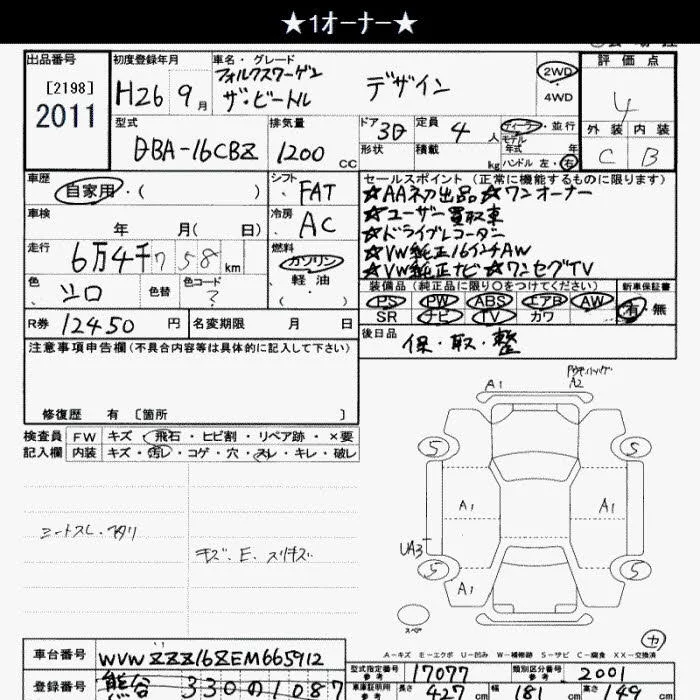 ★1オーナー★
出品番号
[2198]
2011
初度登録年月
H26 9月
車名・グレード
フォルクスワーゲン
ザ・ビートル デザイン
2WD
・
4WD
評価点
4
外装 内装
C B
型式
DBA-16CBZ
排気量
1200 CC
ドア 3D
形状
定員 4 人
積載 kg
ディーラー・並行
モデル
年式 年
ハンドル 左・右
車歴
自家用・( )
シフト
FAT
セールスポイント (正常に機能するものに限ります)
★AA初出品★ワンオーナー
★ユーザー買取車
★ドライブレコーダー
★VW純正16インチAW
★VW純正ナビ★ワンセグTV
車検
年 月( 日)
冷房
AC
走行
6万4千758km
燃料
ガソリン
・
軽油
・
( )
色
シロ
色替
色コード
?
装備品 (純正品に限り○をつけてください)
PS PW ABS エアB AW
SR ナビ TV カワ
新車保証書
有・無
R券 12450 円
名変期限 月 日
後日品
保・取・整
注意事項申告欄(不具合内容等は具体的に記入して下さい)
修復歴 有 〔箇所 〕
検査員
記入欄
FW キズ・飛石・ヒビ割・リペア跡・×要
内装 キズ・汚レ・コゲ・穴・スレ・キレ・破レ
シートスレ・
キズ、E、スリキズ
A1
A2
5
5
A1
A1
UA3
5
5
A1
スペア
カ
A-キズ E-エクボ U-凹み W-補修跡 S-サビ C-腐食 XX-交換済
車台番号
WVWZZZ16ZEM665912
登録番号
熊谷 330の1087
型式指定番号
参考
17077
類別区分番号
参考
2001
車庫証明用
参考
長さ 427 cm
幅 181 cm
高さ 149 cm